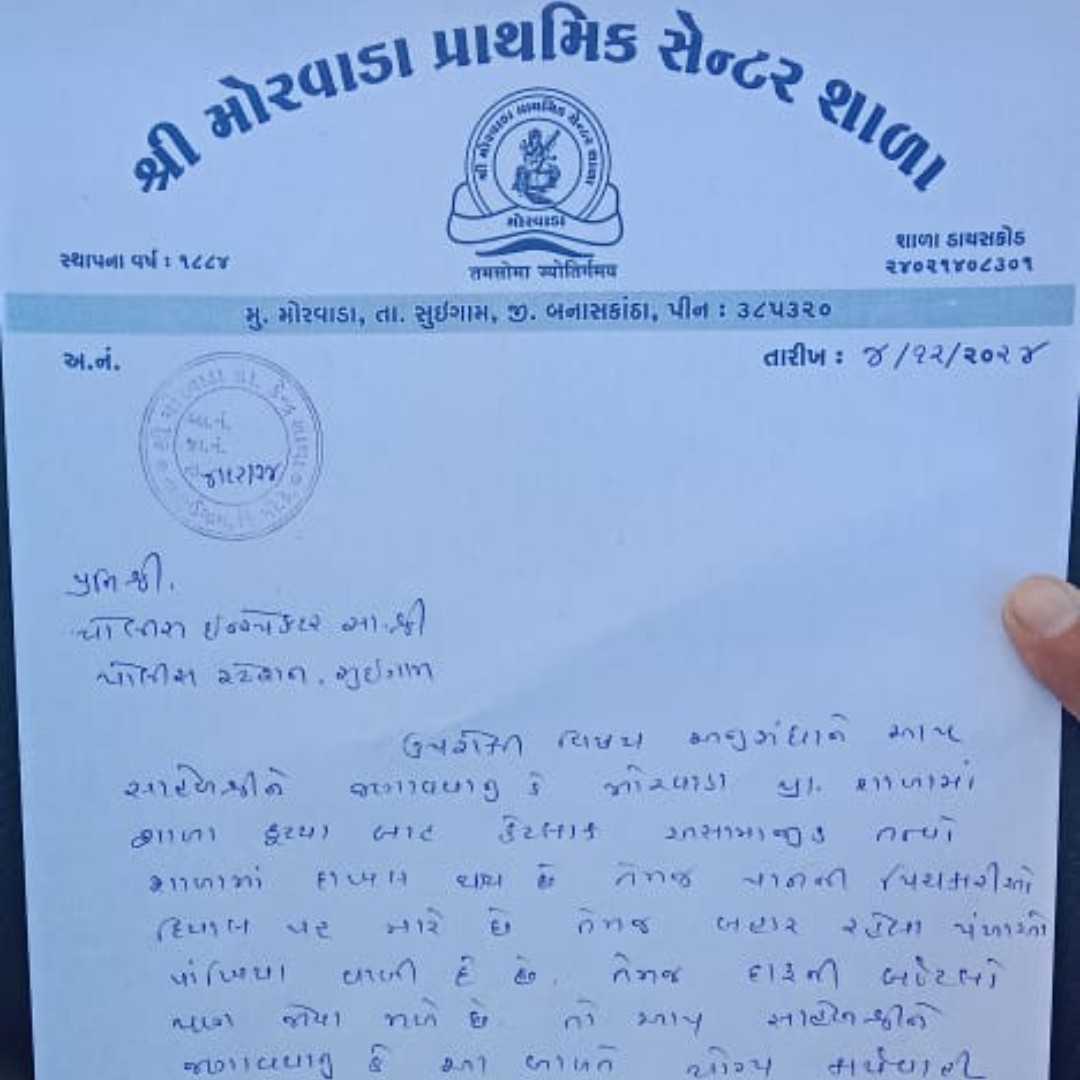 શ્રી મોરવાડા પ્રાથમિક સેન્ટર શાળા
શ્રી મોરવાડા પ્રાથમિક સેન્ટર શાળા
મોરવાડા
તમસોમા જ્યોતિર્ગમય
સ્થાપના વર્ષ : ૧૮૮૪
શાળા ડાયસકોડ
૨૪૦૨૧૪૦૮૩૦૧
મુ. મોરવાડા, તા. સુઈગામ, જી. બનાસકાંઠા, પીન : ૩૮૫૩૨૦
અ.નં.
તારીખ : ૪/૧૨/૨૦૨૪
પ્રતિશ્રી,
પોલીસ ઇન્સ્પેકટર સા.શ્રી
પોલીસ સ્ટેશન, સુઇગામ
ઉપરોક્ત વિષય અનુસંધાને આપ
સાહેબશ્રીને જણાવવાનુ કે મોરવાડા પ્રા. શાળામાં
શાળા છુટ્યા બાદ કેટલાક અસામાજીક તત્વો
શાળામાં દાખલ થાય છે તેમજ પાનની પિચકારીઓ
દિવાલ પર મારે છે તેમજ બહાર રહેલા પંખાની
પાંખિયા વાળી દે છે. તેમજ દારૂની બોટલો
પણ જોવા મળે છે. તો આપ સાહેબશ્રીને
જણાવવાનુ કે આ બાબતે યોગ્ય કાર્યવાહી